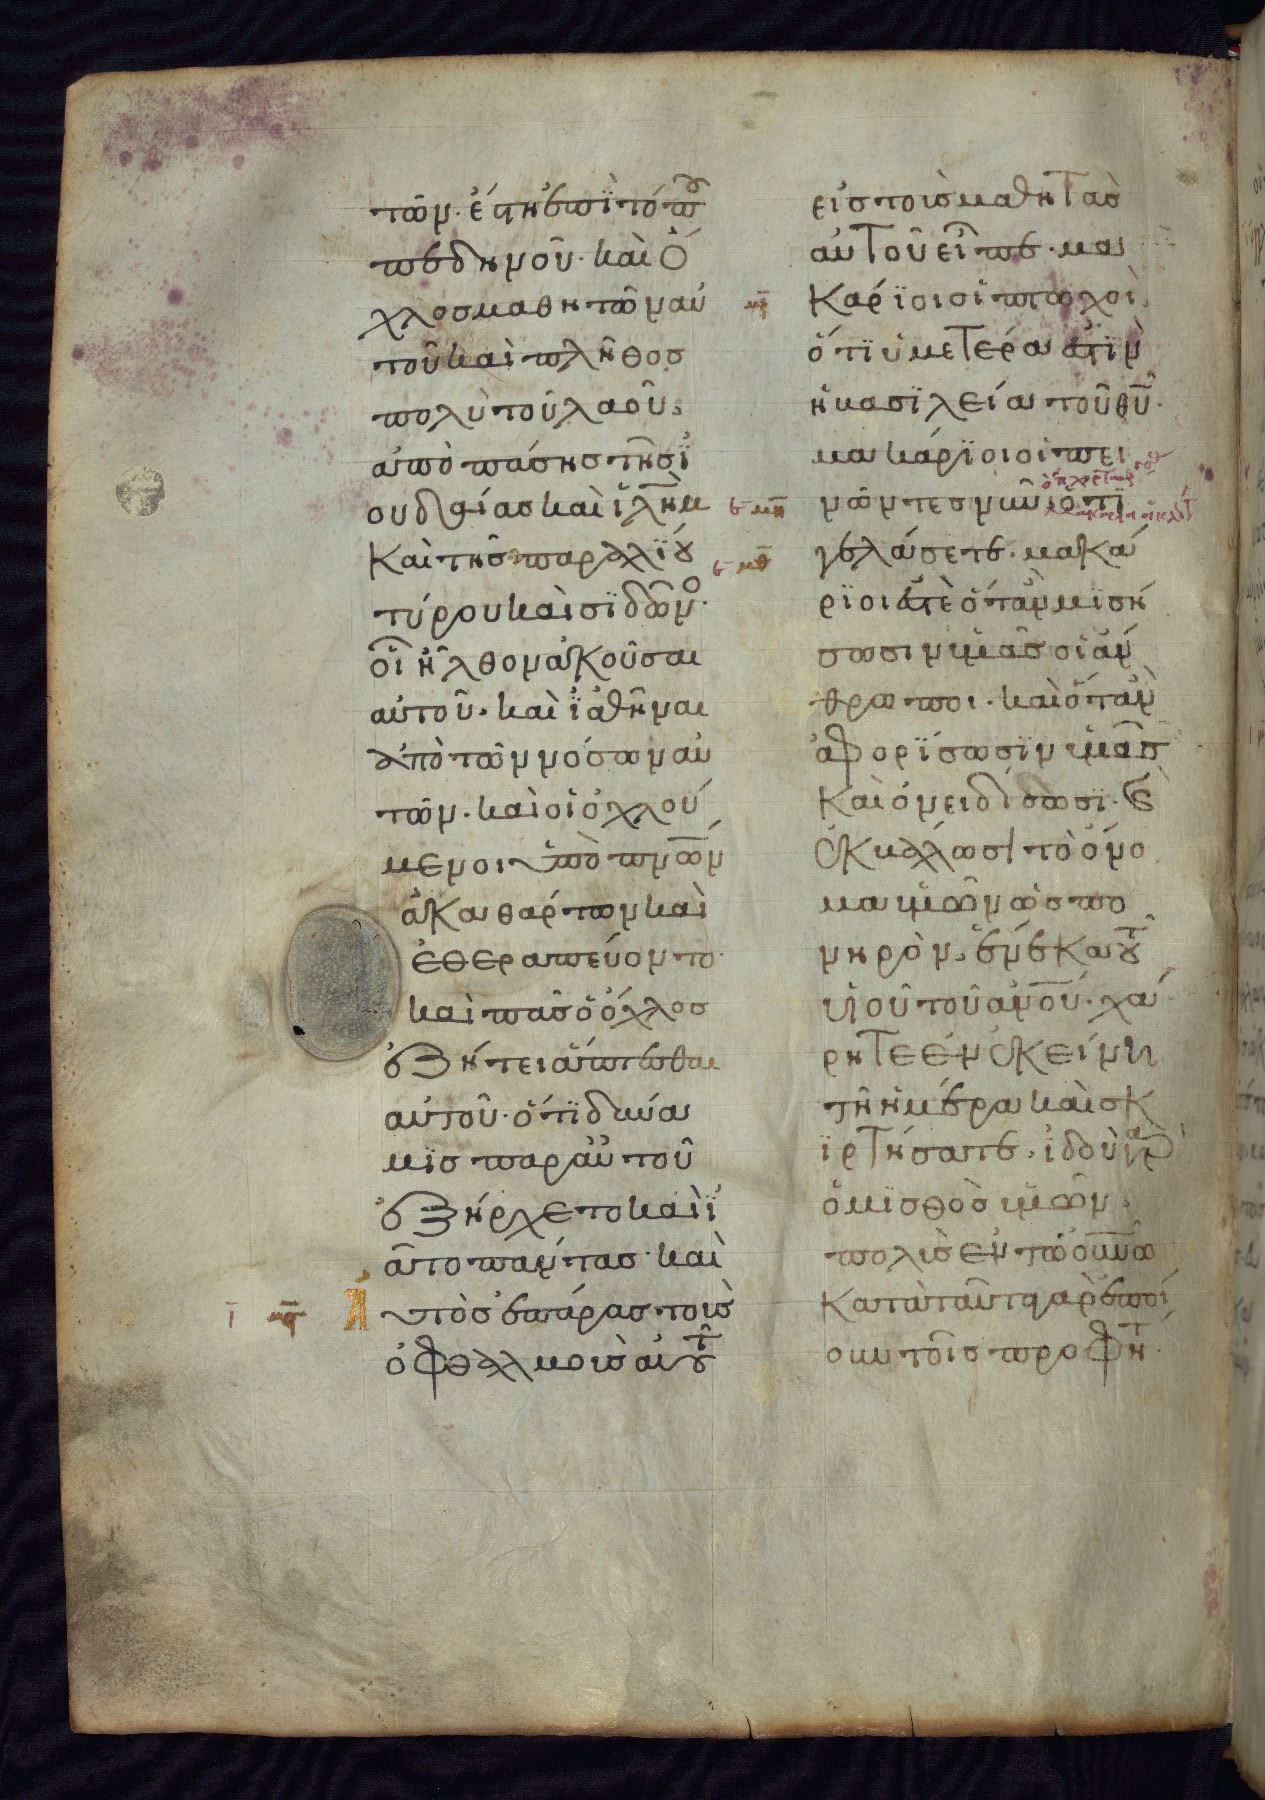 τῶν. ἔστη ἐπῒ τόπου
πεδηνοῦ. καὶ ὄ
χλος μαθητῶν αὐ
τοῦ καὶ πλῆθος
πολὺ τοῦ λαοῦ.
ἀπὸ πάσης τῆς ϊ
ουδαίας καὶ ἱλημ
καὶ τῆς παραλϊου
τύρου καὶ σϊδῶνο
οἳ ἦλθον ἀκοῦσαι
αὐτοῦ. καὶ ϊαθῆναι
ἀπὸ τῶν νόσων αὐ
τῶν. καὶ οἱ ὀχλού
μενοι ὑπὸ πνων
ἀκαθάρτων καὶ
ἐθεραπεύοντο.
καὶ πᾶς ὁ ὄχλος
ἐζήτει ἅπτεσθαι
αὐτοῦ. ὅτϊ δύνα
μϊς παρ αὐτοῦ
ἐξήρχετο καὶ ϊ
ᾶτο πάντας. καὶ
Αὐτὸς ἐπάρας τοὺς
ὀφθαλμοὺς αὐτοῦ
εἰς τοὺς μαθητὰς
αὐτοῦ εἶπε. μα
κάρϊοι οἱ πτωχοὶ.
ὅτϊ ὑμετέρα ἐστϊν
ἡ βασϊλεία τοῦ θυ.
μακάρϊοι οἱ πει
νῶντες νῦν ὅτϊ
γελάσετε. μακά
ρϊοι ἐστὲ ὅταν μϊσή
σωσιν ὑμᾶς οἱ ἄν
θρωποι. καὶ ὅταν
ἀφορϊσωσϊν ὑμᾶς
καὶ ὀνειδίσωσϊ. καὶ
ἐκβάλωσϊ τὸ ὄνο
μα ὑμῶν ὡς πο
νηρὸν. ἕνεκα τοῦ
υἱοῦ τοῦ ανου. χά
ρητε ἐν ἐκείνη
τῆ ἡμέρα καὶ σκ
ϊρτήσατε. ἰδοὺ γὰρ
ὁ μϊσθὸς ὑμῶν
πολὺς ἐν τῶ ουνω
κατὰ ταῦτα γὰρ ἐποί
ουν τοῖς προφήτ